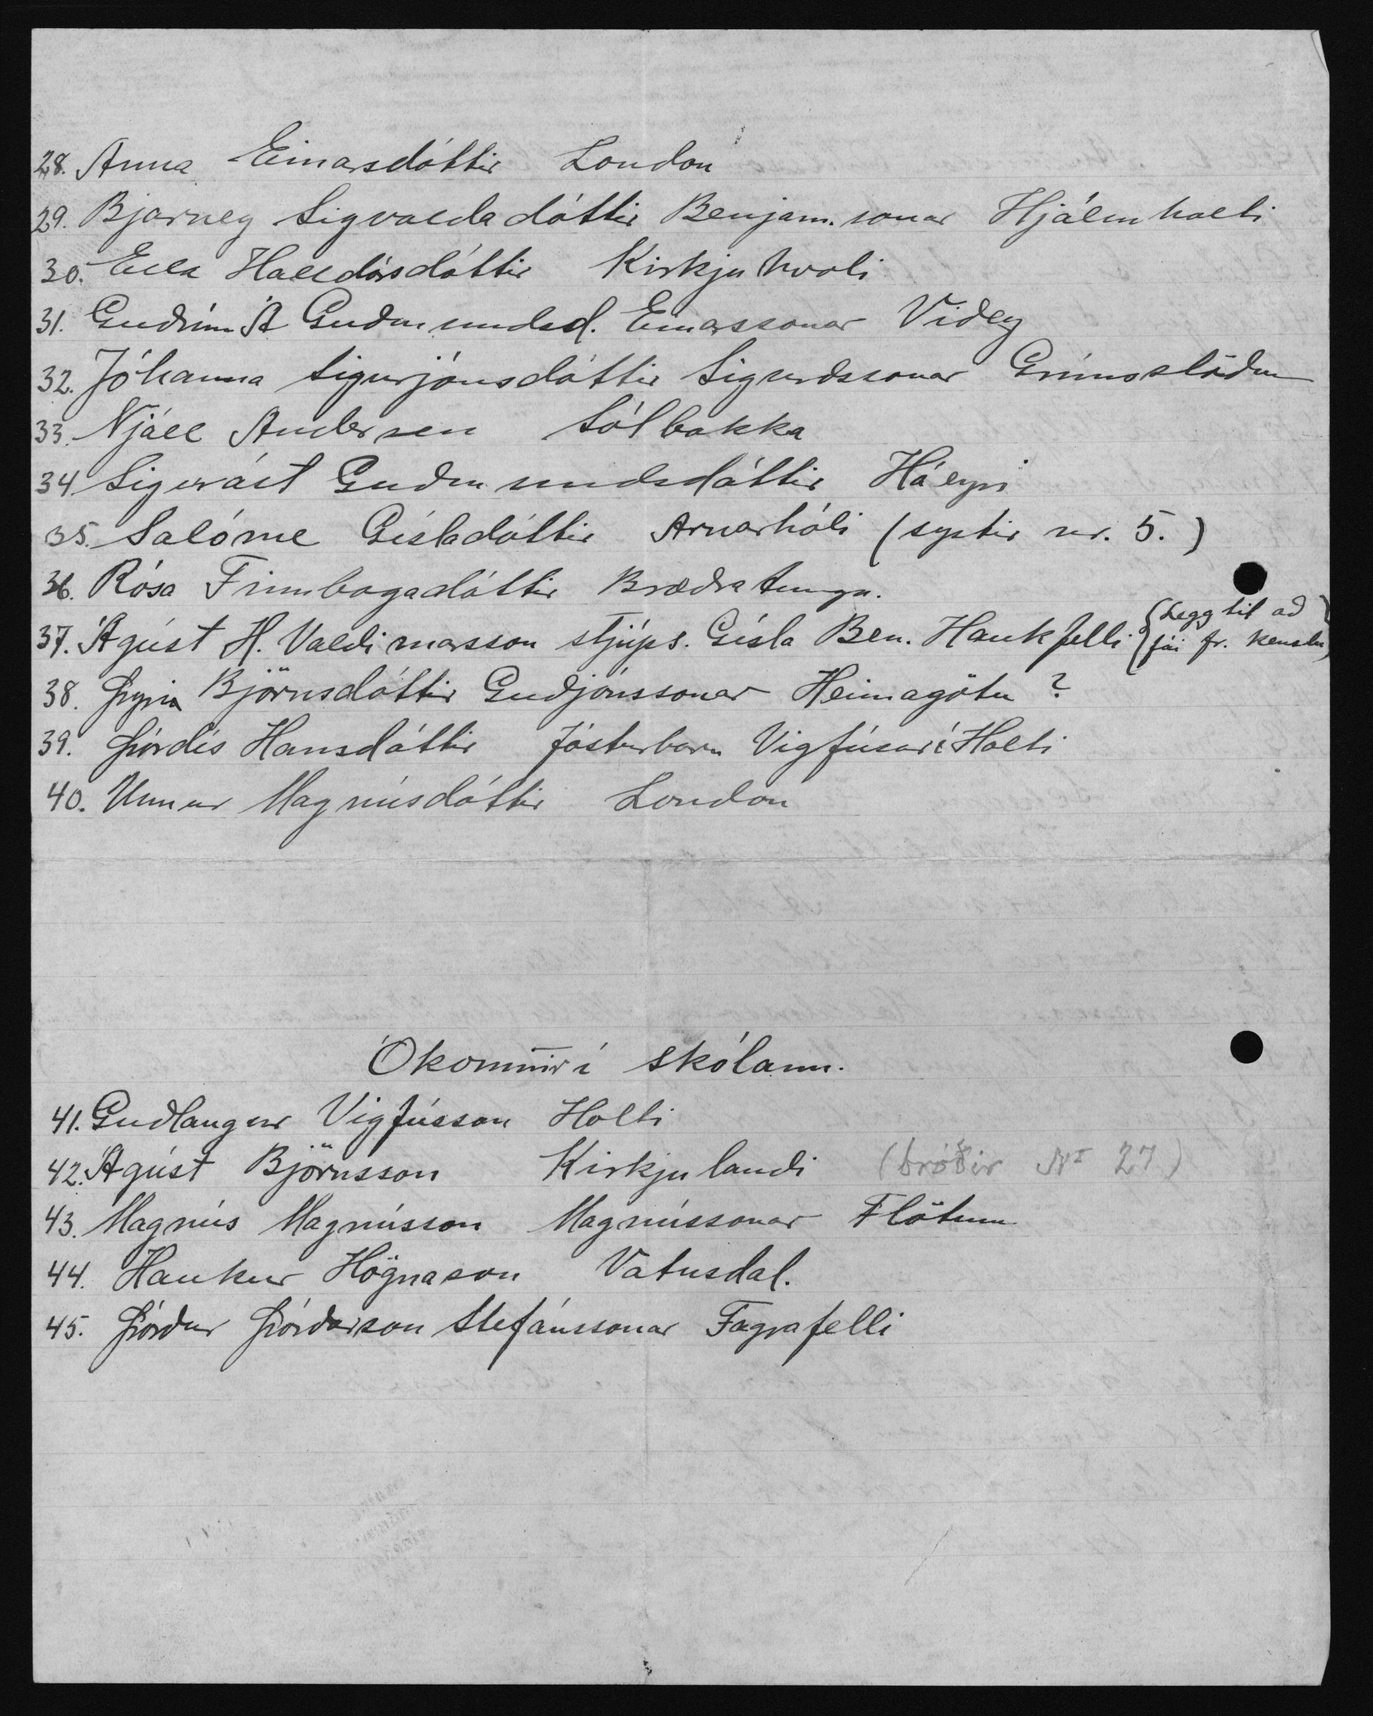 28. Anna Einarsdóttir London
29. Bjarney Sigvaldadóttir Benjam.sonar Hjálmholti
30. Ella Halldórsdóttir Kirkjuhvoli
31. Guðrún Á Guðmundsd. Einarssonar Viðey
32. Jóhanna Sigurjónsdóttir Sigurðssonar Grímsstöðum
33. Njáll Andersen Sólbakka
34 Sigurást Guðmundsdóttir Háeyri
35. Salóme Gísladóttir Arnarhóli (systir nr. 5.)
36. Rósa Finnbogadóttir Bræðratungu.
37. Ágúst H. Valdimarsson stjúps. Gísla Ben. Haukfelli (Legg til að fái fr. kenslu)
38. Þyria Björnsdóttir Guðjónssonar Heimagötu ?
39. Þórdís Hansdóttir fósturbarn Vigfúsar í Holti
40. Unnur Magnúsdóttir London
Ókomnir í skólann.
41. Guðlaugur Vigfússon Holti
42. Ágúst Björnsson Kirkjulandi (bróðir Nr 27)
43. Magnús Magnússon Magnússonar Flötum
44. Haukur Högnason Vatnsdal.
45. Þórður Þórðarson Stefánssonar Fagrafelli